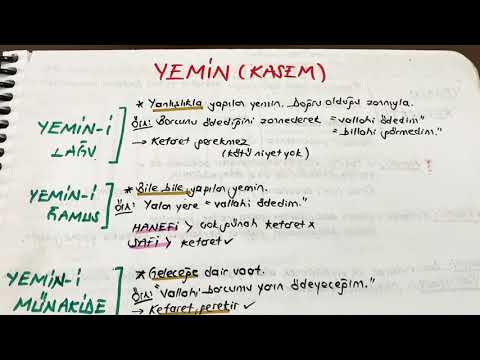 YEMİN (KASEM)
YEMİN-İ LAĞV
* Yanlışlıkla yapılan yemin. Doğru olduğu zannıyla.
Ör: Borcunu ödediğini zannederek "vallahi ödedim"
"billahi görmedim."
→ Kefaret gerekmez
(kötü niyet yok)
YEMİN-İ GAMUS
* Bile bile yapılan yemin.
Ör: Yalan yere "vallahi ödedim."
HANEFİ > çok günah kefaret x
ŞAFİ > kefaret ✓
YEMİN-İ MÜNAKİDE
* Geleceğe dair vaat.
Ör: "Vallahi borcumu yarın ödeyeceğim."
→ Kefaret gerekir ✓